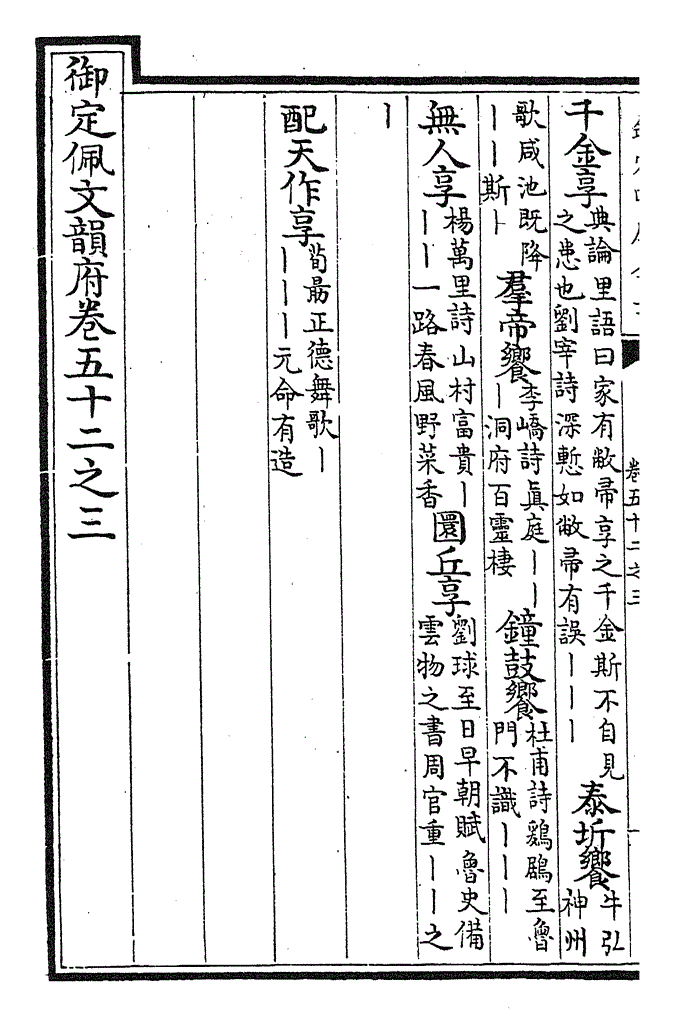 卷五十二之三
千金享典論里語曰家有敝帚享之千金斯不自見之患也劉宰詩深慙如敝帚有誤｜｜｜泰圻饗牛弘神州
歌咸池既降｜｜斯卜羣帝饗李嶠詩眞庭｜｜｜洞府百靈棲鐘鼓饗杜甫詩鷄鶋至魯門不識｜｜｜
無人享楊萬里詩山村富貴｜｜｜一路春風野菜香圜丘享劉球至日早朝賦魯史備雲物之書周官重｜｜之
｜
配天作享荀勗正德舞歌｜｜｜｜元命有造
御定佩文韻府卷五十二之三